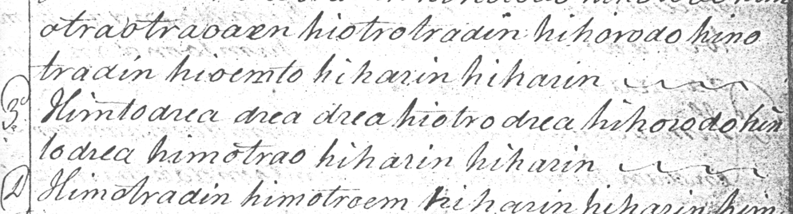 otraotraoaen hiotrotradin hihorodo hino
tradin hioemto hiharin hiharin
3d Himtodrea drea drea hiotrodrea hihorodo hin
todrea himotrao hiharin hiharin
D Himotradin himotroem hiharin hiharin him